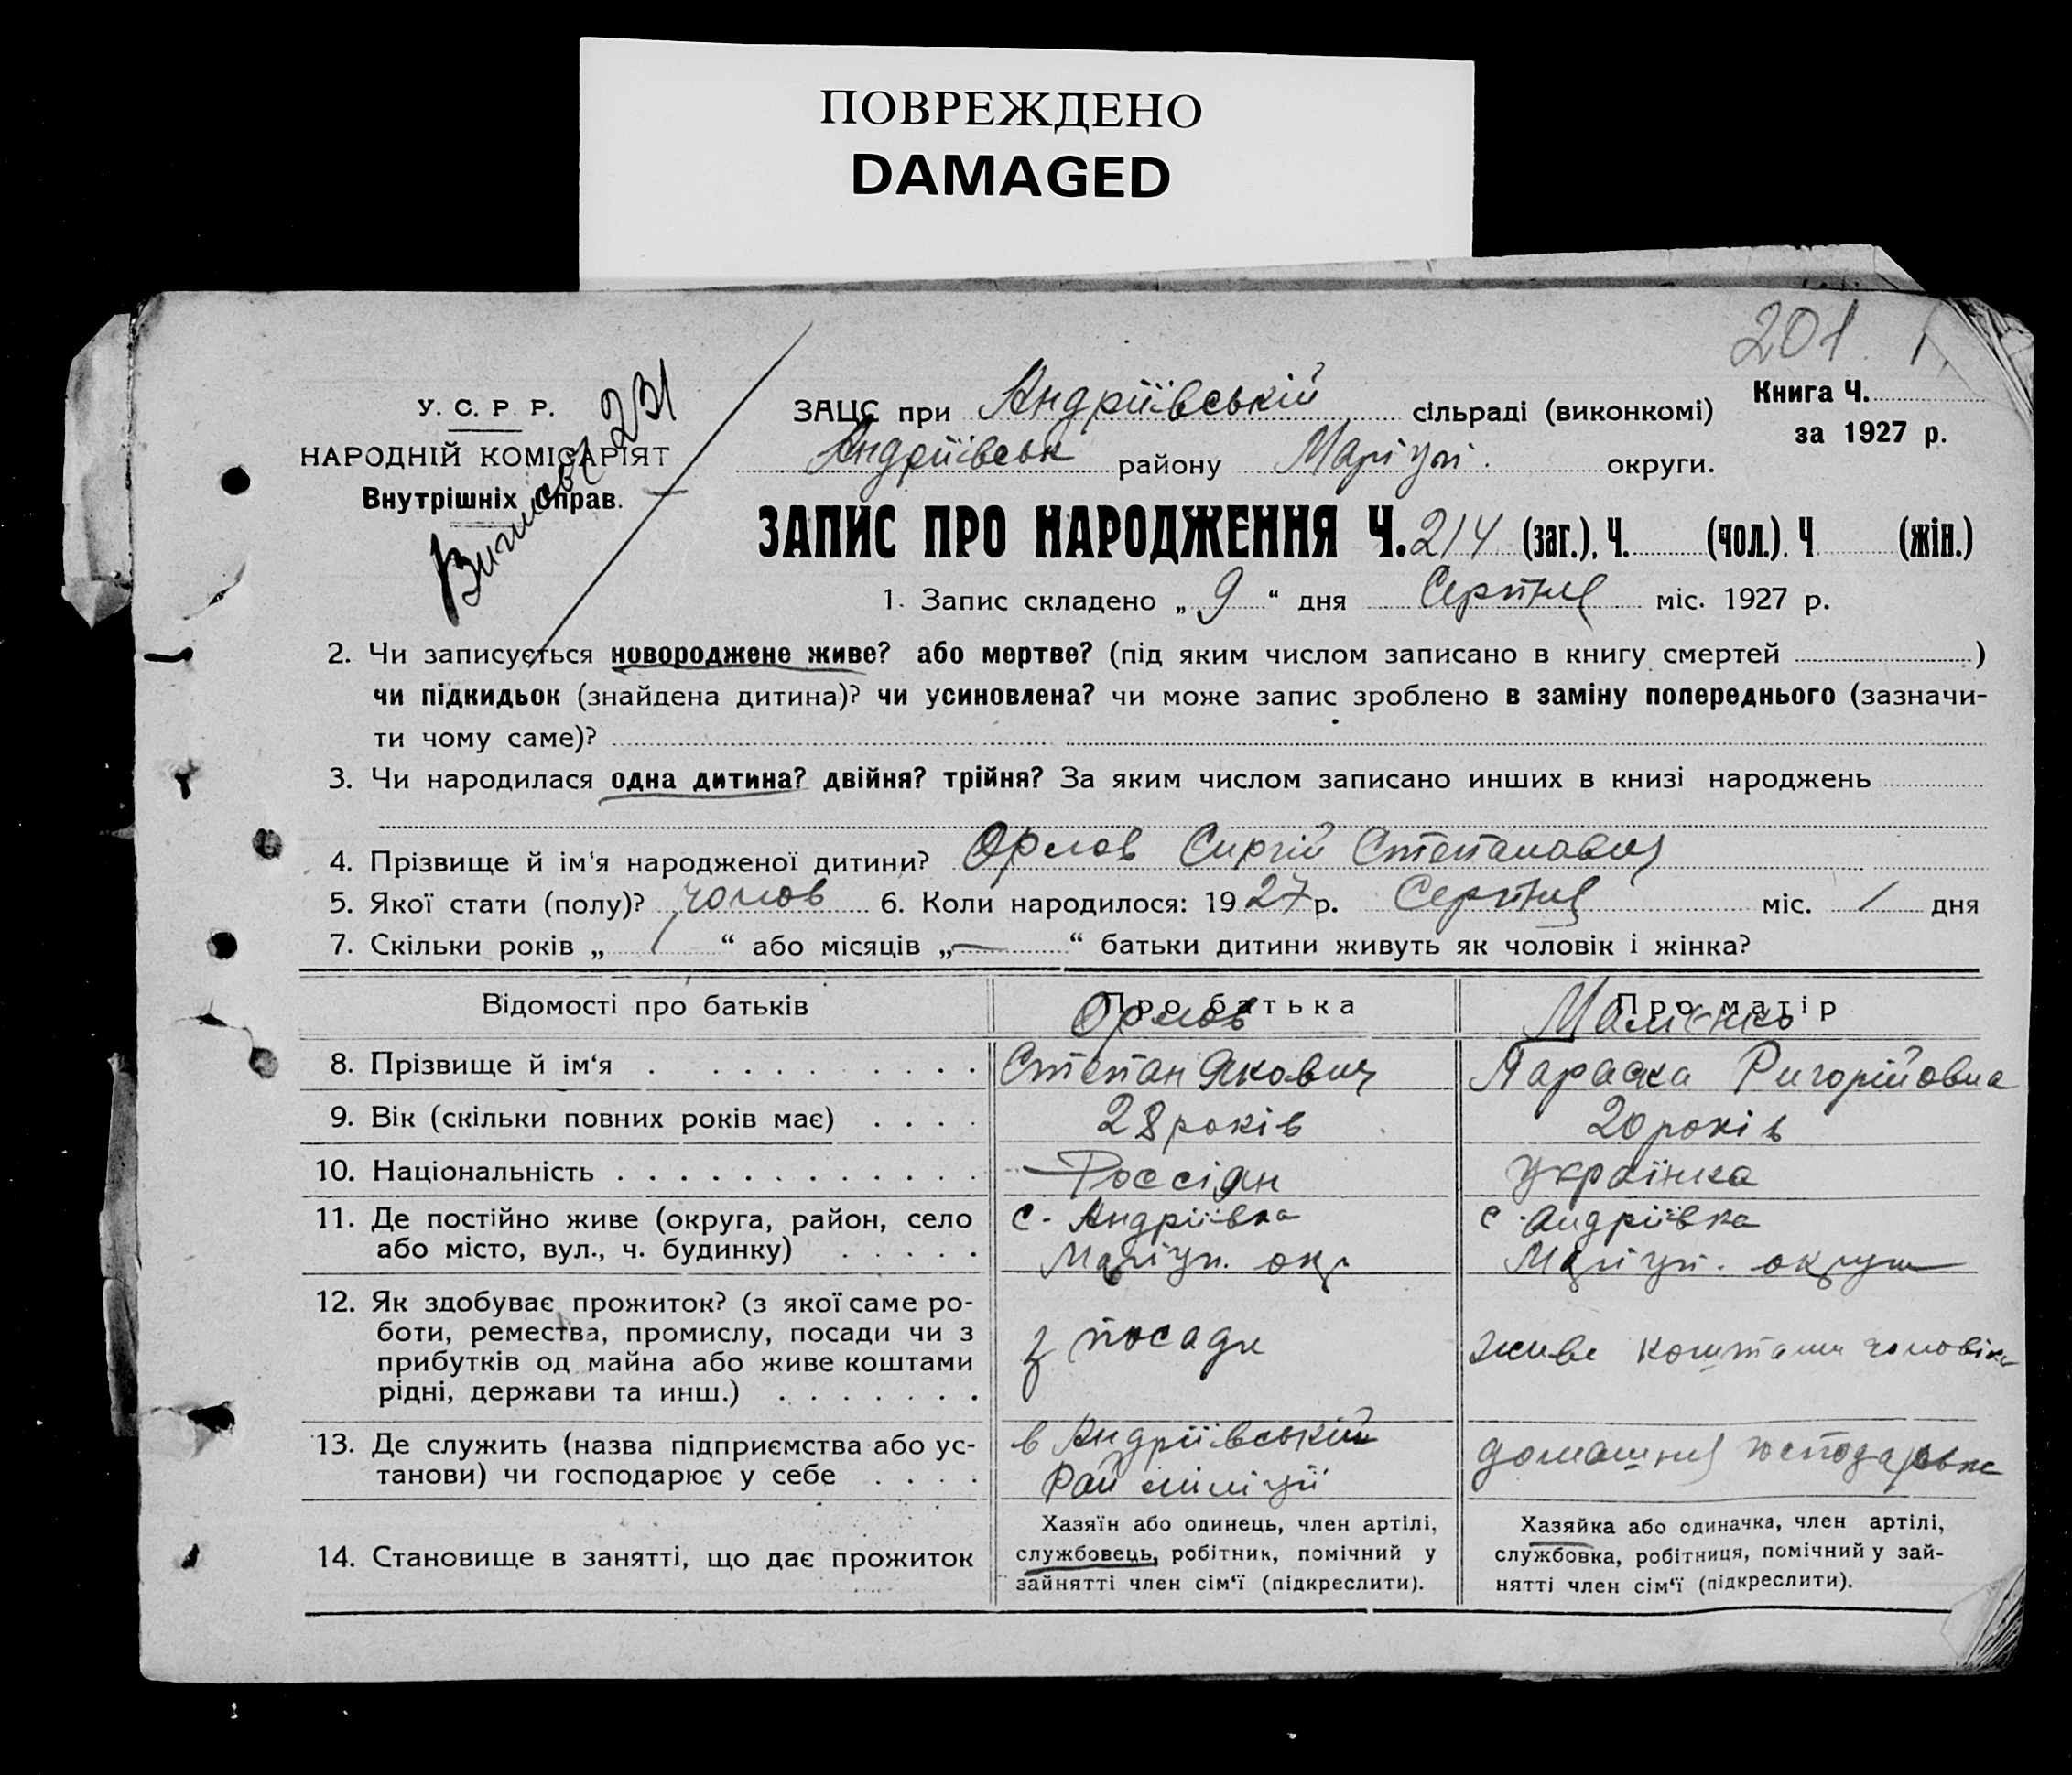 ПОВРЕЖДЕНО
DAMAGED
201
У. С. Р. Р.
НАРОДНІЙ КОМІСАРІЯТ
Внутрішніх Справ.
231
ЗАЦС при Андріївській сільраді (виконкомі)
Книга Ч.
за 1927 р.
Андріївськ району Маріуп. округи.
ЗАПИС ПРО НАРОДЖЕННЯ Ч. 214 (заг.), Ч. (чол.). Ч (жін.)
1. Запис складено „ 9 “ дня Серпня міс. 1927 р.
2. Чи записується новороджене живе? або мертве? (під яким числом записано в книгу смертей )
чи підкидьок (знайдена дитина)? чи усиновлена? чи може запис зроблено в заміну попереднього (зазначи-
ти чому саме)?
3. Чи народилася одна дитина? двійня? трійня? За яким числом записано инших в книзі народжень
4. Прізвище й ім'я народженої дитини? Орлов Сиргій Степанович
5. Якої стати (полу)? чолов 6. Коли народилося: 1927 р. Серпня міс. 1 дня
7. Скільки років „ 1 “ або місяців „ — “ батьки дитини живуть як чоловік і жінка?
Відомості про батьків
Про батька
Про матір
8. Прізвище й ім‘я
Орлов
Степан Якович
Параска Ригорійовна
9. Вік (скільки повних років має)
28 років
20 років
10. Національність
Россіян
Українка
11. Де постійно живе (округа, район, село
або місто, вул., ч. будинку)
с. Андріївка
Маріуп. окр
с. Андріївка
Маріуп. округи
12. Як здобуває прожиток? (з якої саме ро-
боти, ремества, промислу, посади чи з
прибутків од майна або живе коштами
рідні, держави та инш.)
з посади
живе коштами чоловіка
13. Де служить (назва підприємства або ус-
танови) чи господарює у себе
в Андріївській
Рай міліції
домашня господарка
14. Становище в занятті, що дає прожиток
Хазяїн або одинець, член артілі,
службовець, робітник, помічний у
зайнятті член сім‘ї (підкреслити).
Хазяйка або одиначка, член артілі,
службовка, робітниця, помічний у зай-
нятті член сім‘ї (підкреслити).